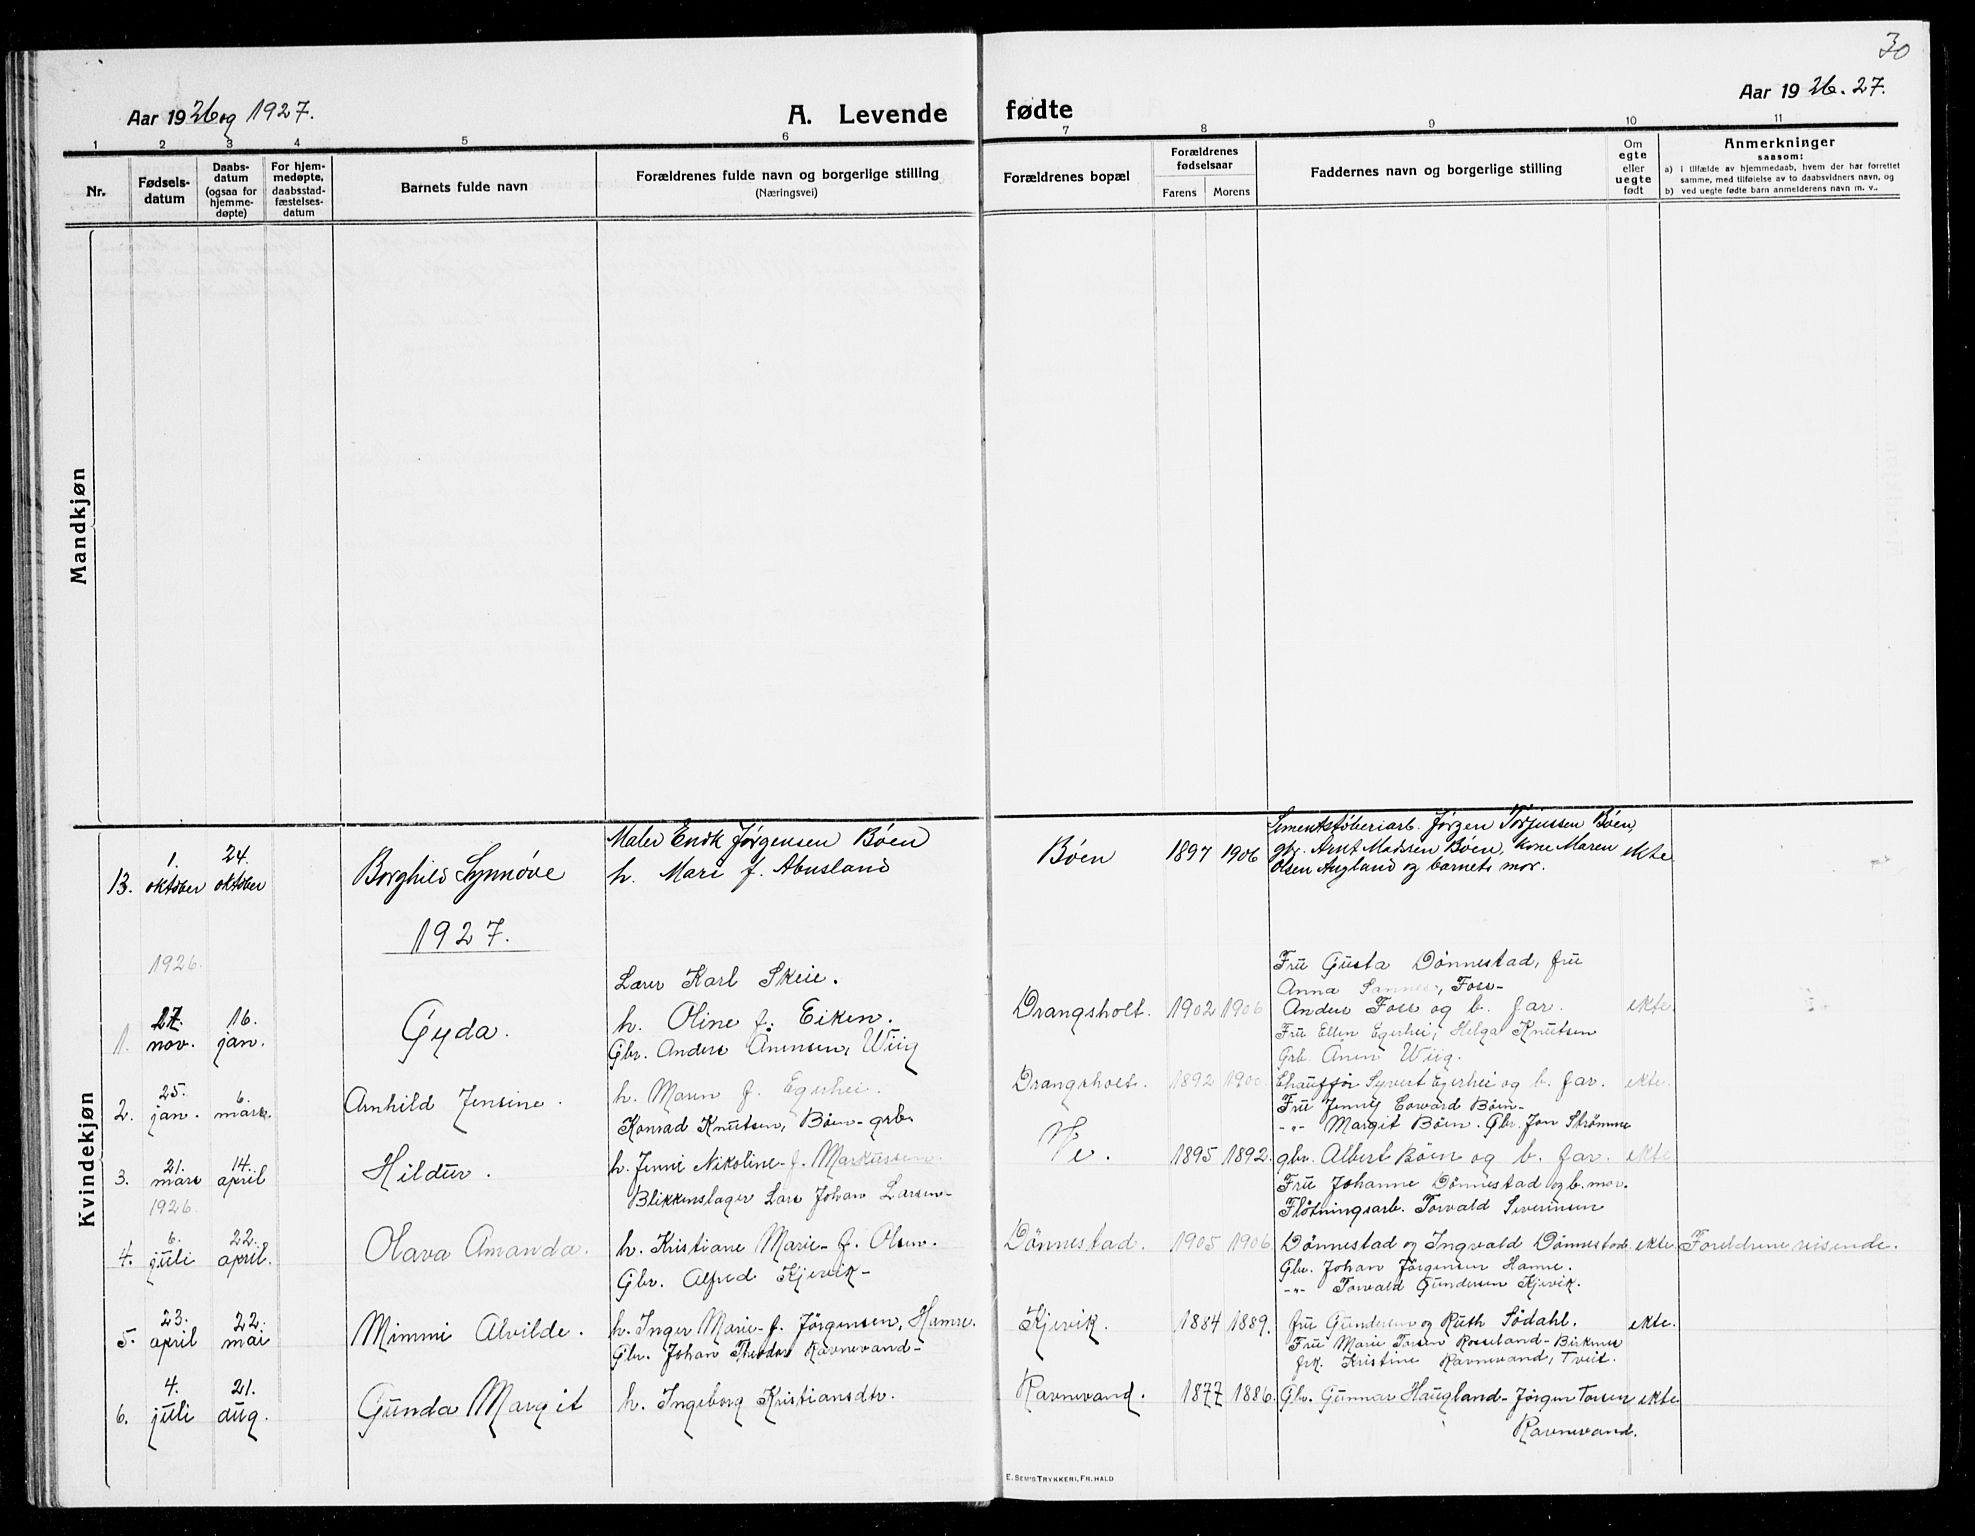 30
Aar 1926 og 1927.
A. Levende fødte
Aar 1926. 27.
1 2 3 4 5 6 7 8 9 10 11
Nr.
Fødsels-
datum
Daabs-
datum
(ogsaa for
hjemme-
døpte)
For hjem-
medøpte,
daabsstad-
fæstelses-
datum
Barnets fulde navn
Forældrenes fulde navn og borgerlige stilling
(Næringsvei)
Forældrenes bopæl
Forældrenes
fødselsaar
Farens Morens
Faddernes navn og borgerlige stilling
Om
egte
eller
uegte
født
Anmerkninger
saasom:
a) i tilfælde av hjemmedaab, hvem der har forrettet
samme, med tilføielse av to daabsvidners navn, og
b) ved uegte fødte barn anmelderens navn m. v..
Mandkjøn
Kvindekjøn
13. 1. oktober 24. oktober
Borghild Synnøve
Maler Endk Jørgensen Bøen
h. Mari f. Abusland
Bøen 1897 1906
Sementstøberiarb. Jørgen Torjussen Bøen,
gbr. Arnt Madsen Bøen, kone Maren
Olsen Augland og barnets mor.
ekte
1927.
1926.
1. 27. nov. 16. jan.
Gyda.
Lærer Karl Skeie.
h. Oline f. Eiken.
Drangsholt. 1902 1906
Fru Gusta Dønnestad, fru
Anna Sannes, Foss-
Anders Foss og b. far.
ekte.
2. 25. jan. 6. mars.
Arnhild Jensine.
Gbr. Anders Ånensen, Wiig
h. Maren f. Egerhei.
Drangsholt. 1892 1900.
Fru Ellen Egerhei, Helga Knutsen
Grb. Ånen Wiig.
Chauffør Syvert Egerhei og b. far.
ekte.
3. 21. mars 14. april
Hildur.
Konrad Knutsen, Bøen- grb.
h. Jenni Nikoline f. Markussen.
Ve. 1895 1892.
Fru Jenny Edvard Bøen-
-"- Margit Bøen. Gbr. Jon Strømme
gbr. Albert Bøen og b. far.
ekte
1926.
4. 6. juli 22. april.
Olava Amanda.
Blikkenslager Lars Johan Larsen-
h. Kristiane Marie- f. Olsen.
Dønnestad. 1905 1906
Fru Johanne Dønnestad og b. mor.
Fløtningsarb. Torvald Severinsen
Dønnestad og Ingvald Dønnestad
ekte
Foreldrene reisende.
5. 23. april 22. mai
Mimmi Alvilde.
Gbr. Alfred Kjevik-
h. Inger Marie- f. Jörgensen, Hamre.
Kjevik. 1884 1889.
Gbr. Johan Jörgensen Hamre.
-"- Torvald Gundersen Kjevik.
fru Gundersen og Ruth Södahl.
ekte.
6. 4. juli 21. aug.
Gunda Margit
Gbr. Johan Theodor Ravnevand-
h. Ingeborg Kristiansdtr.
Ravnevand. 1877 1886.
Fru Marie Torsen Rosseland- Birkenes
frk. Kristine Ravnevand, Tveit.
Gbr. Gunnar Haugland- Jørgen Torsen
Ravnevand.
ekte
E. SEM'S TRYKKERI, FR. HALD